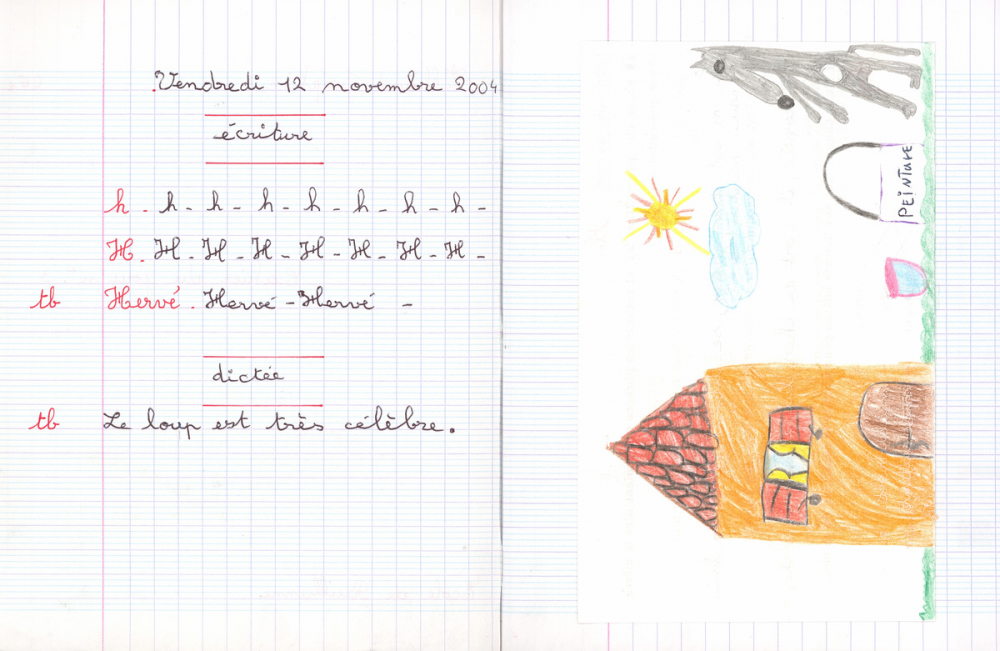 Vendredi 12 novembre 2004
écriture
h . h - h - h - h - h - h - h -
H . H - H - H - H - H - H - H -
tb Hervé . Hervé - Hervé -
dictée
tb Le loup est très célèbre.
PEINTURE